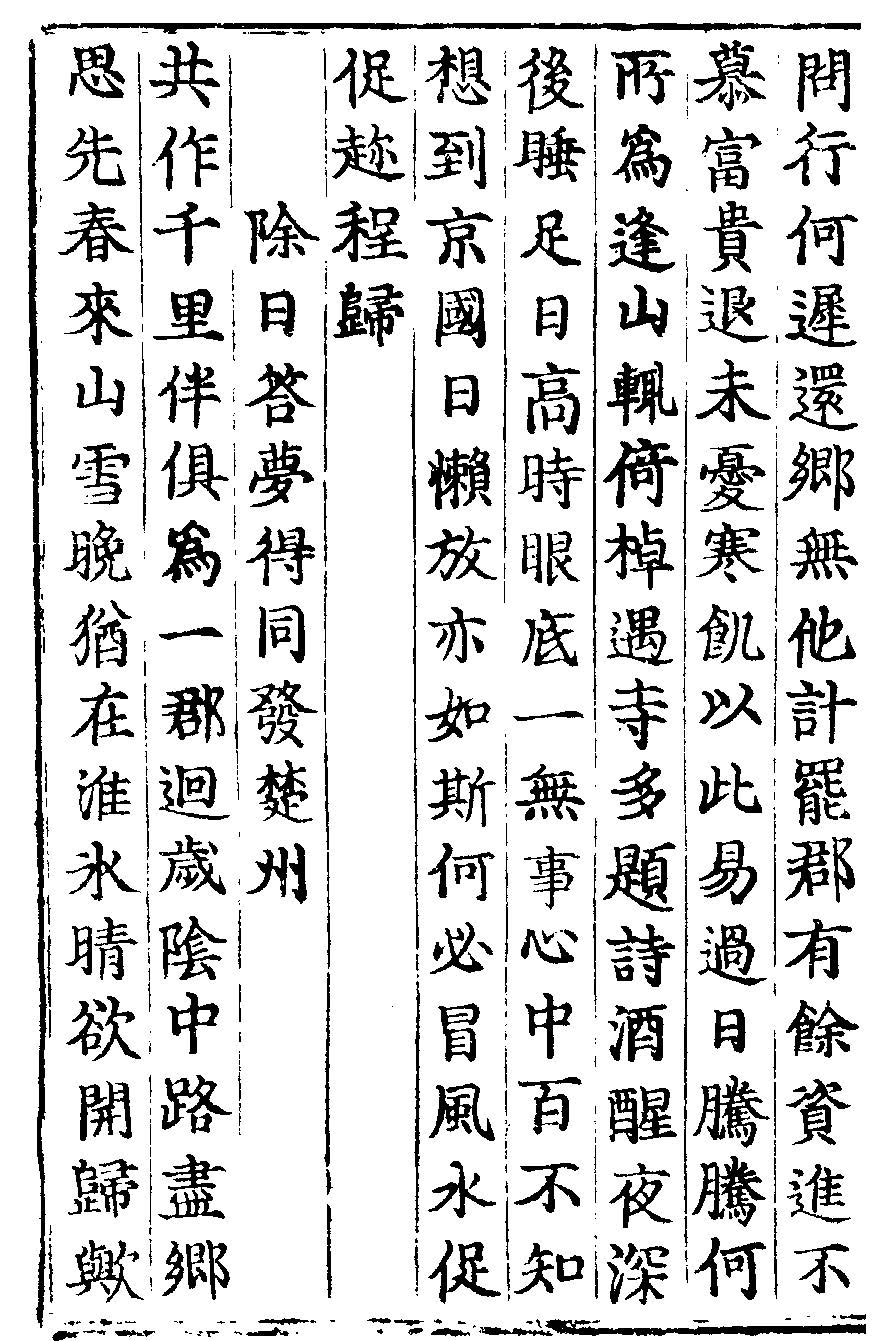 問行何遲還郷無他計罷郡有餘資進不
慕富貴退未憂寒飢以此易過日騰騰何
所爲逢山輒倚棹遇寺多題詩酒醒夜深
後睡足日高時眼底一無事心中百不知
想到京國日懶放亦如斯何必冒風水促
促趂程歸
除日答夢得同發楚州
共作千里伴俱爲一郡迴歲陰中路盡郷
思先春來山雪晚猶在淮氷晴欲開歸歟